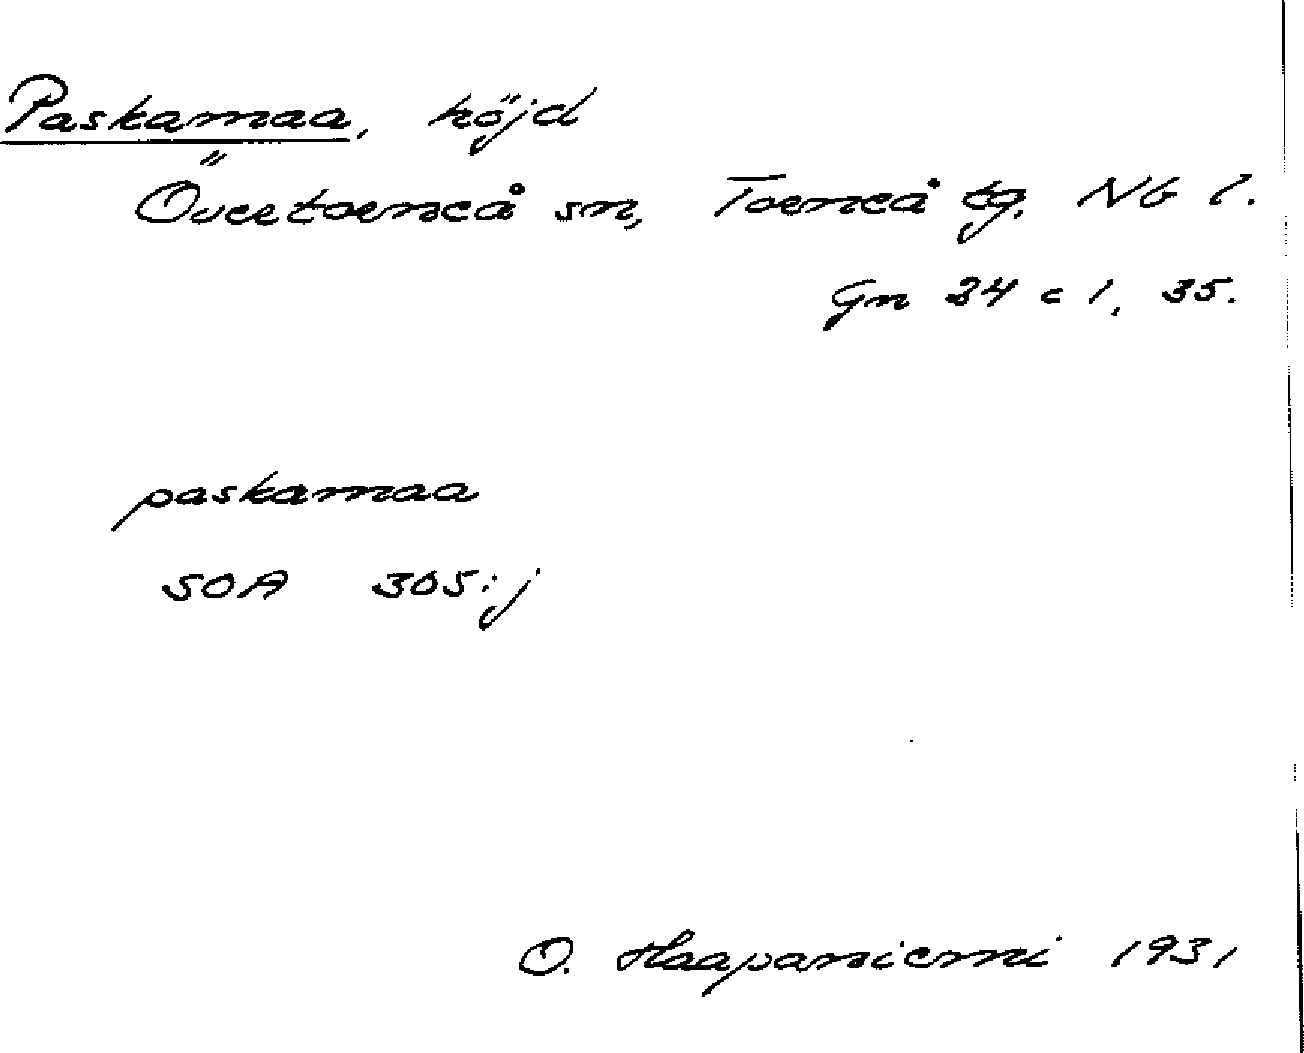 Paskamaa, höjd
Övertorneå sn, Torneå tg. Nb l.
Gn 34 c 1, 35.
paskamaa
SOA 305:j
O. Haapaniemi 1931